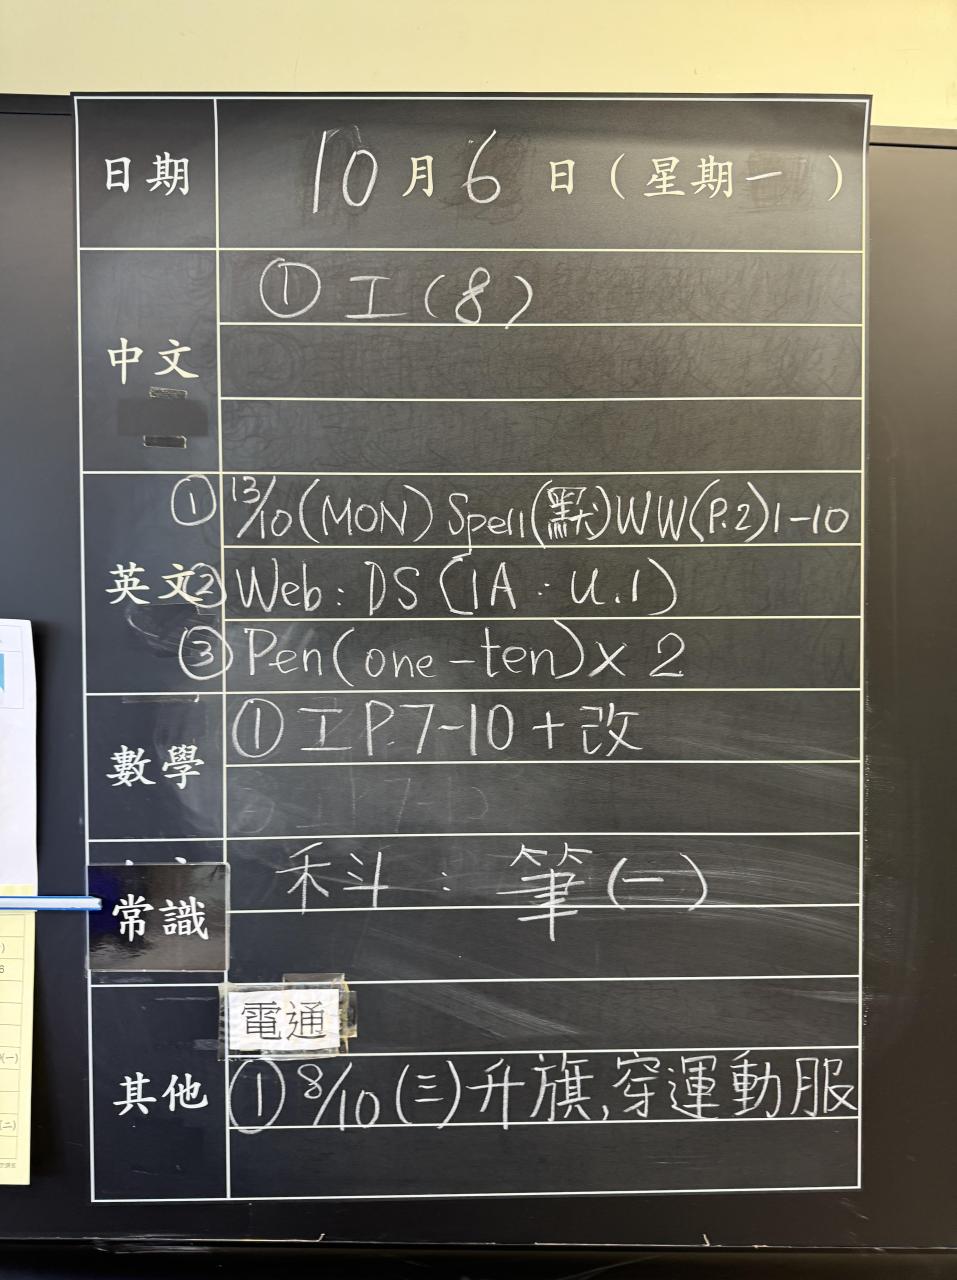 日期 10月6日(星期一)
中文 ① 工(8)
英文 ① 13/10(MON) Spell(默)WW(P.2)1-10
② Web: DS(1A · u.1)
③ Pen(one-ten)x 2
數學 ① 工P.7-10+改
常識 科: 筆(一)
其他 電通
① 8/10(三)升旗,穿運動服